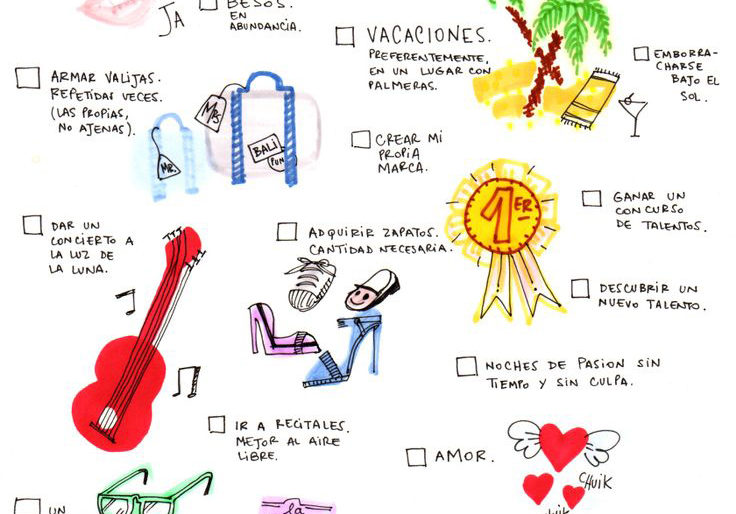 JA
BESOS.
EN
ABUNDANCIA.
VACACIONES.
PREFERENTEMENTE,
EN UN LUGAR CON
PALMERAS.
EMBORRA-
CHARSE
BAJO EL
SOL.
ARMAR VALIJAS.
REPETIDAS VECES.
(LAS PROPIAS,
NO AJENAS).
MRS
BALI
PUN
MR.
CREAR MI
PROPIA
MARCA.
1ER
GANAR UN
CONCURSO
DE TALENTOS.
DAR UN
CONCIERTO A
LA LUZ DE
LA LUNA.
ADQUIRIR ZAPATOS.
CANTIDAD NECESARIA.
DESCUBRIR UN
NUEVO TALENTO.
NOCHES DE PASION SIN
TIEMPO Y SIN CULPA.
IR A RECITALES.
MEJOR AL AIRE
LIBRE.
AMOR.
CHUIK
UN
la